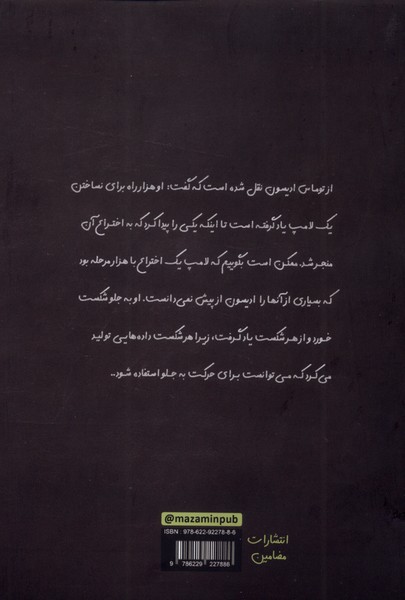 از توماس ادیسون نقل شده است که گفت: او هزار راه برای نساختن
یک لامپ یاد گرفته است تا اینکه یکی را پیدا کرد که به اختراع آن
منجر شد. ممکن است بگوییم که لامپ یک اختراع با هزار مرحله بود
که بسیاری از آنها را ادیسون از پیش نمی‌دانست. او به جلو شکست
خورد و از هر شکست یاد گرفت، زیرا هر شکست داده‌هایی تولید
می‌کرد که می‌توانست برای حرکت به جلو استفاده شود..
@mazaminpub
ISBN : 978-622-92278-8-6
9 786229 227886
انتشارات
مضامین